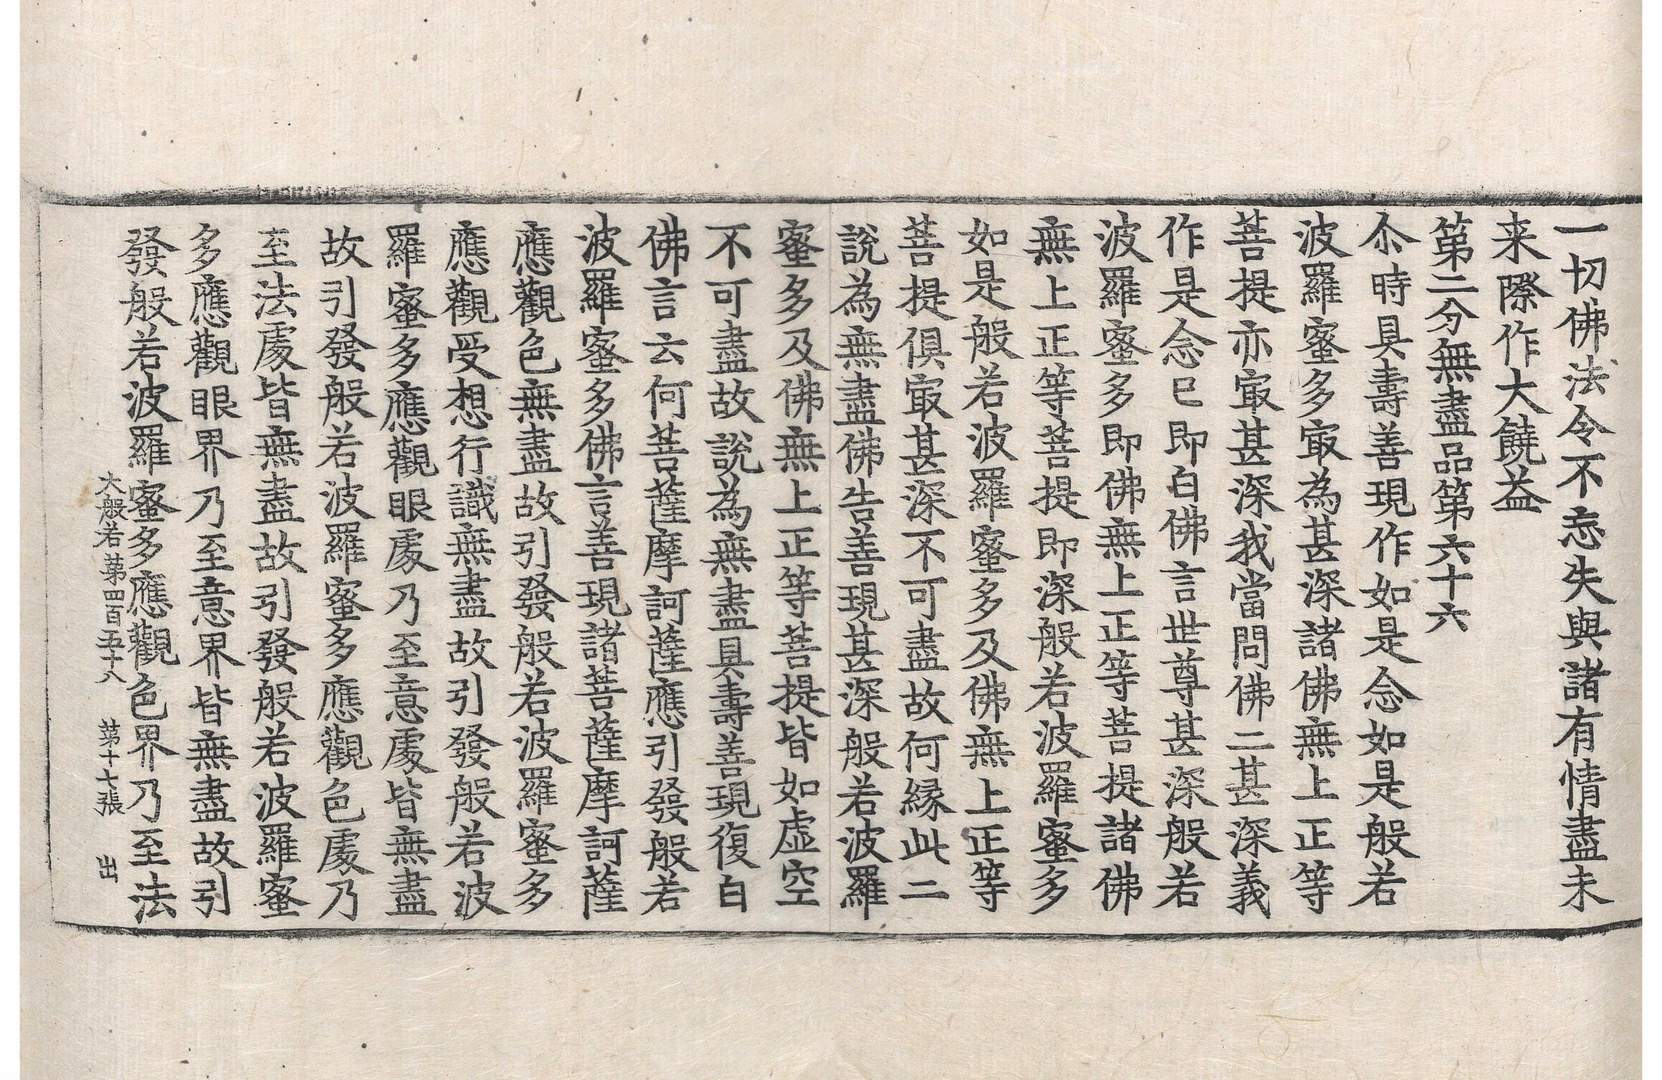 一切佛法令不忘失與諸有情盡未
来際作大饒益
第二分無盡品第六十六
尒時具壽善現作如是念如是般若
波羅蜜多㝡為甚深諸佛無上正等
菩提亦㝡甚深我當問佛二甚深義
作是念已即白佛言世尊甚深般若
波羅蜜多即佛無上正等菩提諸佛
無上正等菩提即深般若波羅蜜多
如是般若波羅蜜多及佛無上正等
菩提俱㝡甚深不可盡故何緣此二
說為無盡佛告善現甚深般若波羅
蜜多及佛無上正等菩提皆如虛空
不可盡故說為無盡具壽善現復白
佛言云何菩薩摩訶薩應引發般若
波羅蜜多佛言善現諸菩薩摩訶薩
應觀色無盡故引發般若波羅蜜多
應觀受想行識無盡故引發般若波
羅蜜多應觀眼處乃至意處皆無盡
故引發般若波羅蜜多應觀色處乃
至法處皆無盡故引發般若波羅蜜
多應觀眼界乃至意界皆無盡故引
發般若波羅蜜多應觀色界乃至法
大般若第四百五十八 第十七張 出